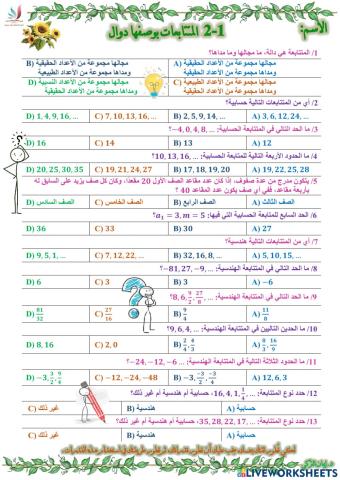 الأسم:
2-1 المتتابعات بوصفها دوال
1/ المتتابعة هي دالة، ما مجالها وما مداها؟
A) مجالها مجموعة من الأعداد الحقيقية B) مجالها مجموعة من الأعداد الحقيقية
ومداها مجموعة من الأعداد الحقيقية ومداها مجموعة من الأعداد الطبيعية
C) مجالها مجموعة من الأعداد الطبيعية D) مجالها مجموعة من الأعداد النسبية
ومداها مجموعة من الأعداد الحقيقية ومداها مجموعة من الأعداد الطبيعية
2/ أي من المتتابعات التالية حسابية؟
A) 3, 6, 12, 24, ... B) 2, 5, 9, 14, ... C) 7, 10, 13, 16, ... D) 1, 4, 9, 16, ...
3/ ما الحد التالي في المتتابعة الحسابية: −4, 0, 4, 8, ...؟
A) 12 B) 13 C) 14 D) 16
4/ ما حدود الأربعة التالية للمتتابعة الحسابية: 10, 13, 16, ...؟
A) 19, 20, 21, 22 B) 17, 18, 19, 20 C) 19, 21, 24, 27 D) 20, 25, 30, 35
5/ يتكون مدرج من عدة صفوف، إذا كان عدد مقاعد الصف الأول 20 مقعدا، وكان كل صف يزيد على السابق له
بأربعة مقاعد، ففي أي صف يكون عدد المقاعد 40 ؟
A) الصف الثالث B) الصف الرابع C) الصف الخامس D) الصف السادس
6/ الحد السابع للمتتابعة الحسابية التي فيها:
A) 27 B) 30 C) 33 D) 36
7/ أي من المتتابعات التالية هندسية؟
A) 5, 10, 15, ... B) 32, 16, 8, ... C) 7, 12, 22, ... D) 9, 5, 1, ...
8/ ما الحد التالي في المتتابعة الهندسية: −81, 27, −9, ...؟
A) −6 B) 3 C) 3 D) 6
9/ ما الحد التالي في المتتابعة الهندسية: 8, 6, 9/2, 27/8, ...؟
A) 11/8 B) 9/4 C) 27/16 D) 81/32
10/ ما الحدين التاليين في المتتابعة الهندسية: 9, 6, 4, ...؟
C) 2, 0 D) 8, 16
11/ ما الحدود الثلاثة التالية في المتتابعة الهندسية: −24, −12, −6, ...؟
A) 12, 6, 3 C) −12, −24, −48
12/ حدد نوع المتتابعة: 16, 4, 1, 1/4, ...، حسابية أم هندسية أم غير ذلك؟
A) حسابية B) هندسية C) غير ذلك
13/ حدد نوع المتتابعة: 35, 28, 22, 17, ...، حسابية أم هندسية أم غير ذلك؟
A) حسابية B) هندسية C) غير ذلك
LIVEWORKSHEETS